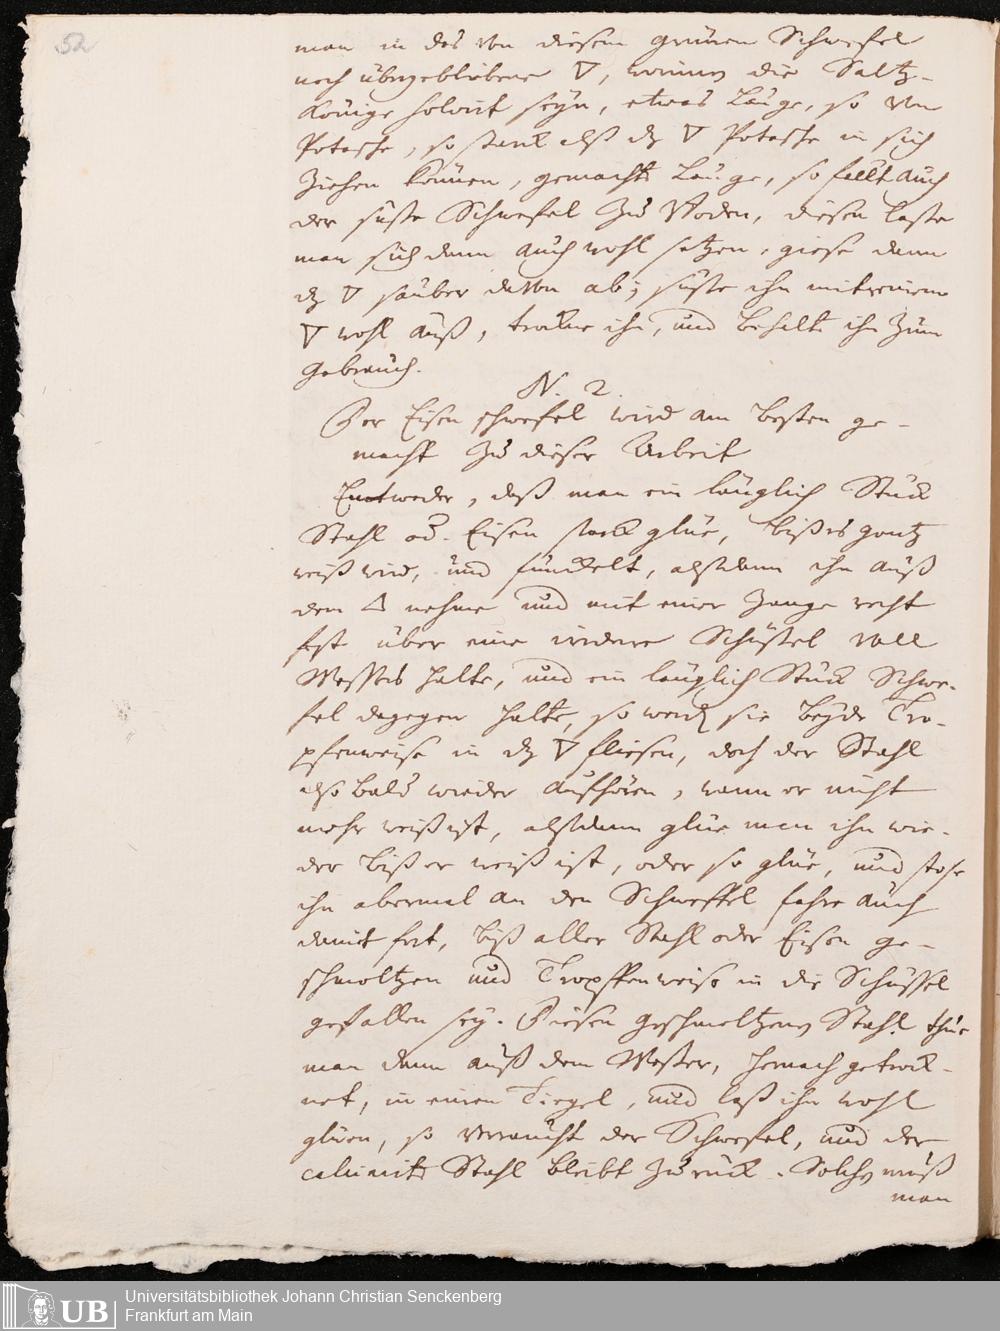 52
man in das von diesem grünen Schwefel
noch übergebliebene ▽, worinn die Saltz-
Könige solvirt seyn, etwas Lauge, so von
Potasche, so starck alß dz ▽ Potasche in sich
ziehen können, gemachte Lauge, so fällt auch
der süße Schwefel zu Boden, diesen laße
man sich dann auch wohl setzen, gieße dann
dz ▽ sauber davon ab; süße ihn mit reinem
▽ wohl auß, trockne ihn, und behalte ihn zum
Gebrauch.
N. 2.
Der Eisen schwefel wird am besten ge-
macht zu dieser Arbeit
Entweder, daß man ein länglich Stück
Stahl od. Eisen starck glüe, biß es gantz
weiß wird, und funckelt, alßdann ihn auß
dem △ nehme und mit einer Zange recht
fest über eine irdene Schüßel voll
Waßers halte, und ein länglich Stück Schwe-
fel dagegen halte, so werden sie beyde Tro-
pfenweise in dz ▽ fliesen, doch der Stahl
also bald wieder aufhören, wann er nicht
mehr weiß ist, alßdann glüe man ihn wie-
der biß er weiß ist, oder so glüe, und stoße
ihn abermal an den Schweffel fahre auch
damit fort, biß aller Stahl oder Eisen ge-
schmoltzen und Tropffenweise in die Schüßel
gefallen sey. Diesen geschmoltzenen Stahl thue
man dann auß dem Waßer, hernach getrock-
net, in einen Tiegel, und laß ihn wohl
glüen, so verraucht der Schwefel, und der
calcinirte Stahl bleibt zurück. Solchen muß
man
UB
Universitätsbibliothek Johann Christian Senckenberg
Frankfurt am Main